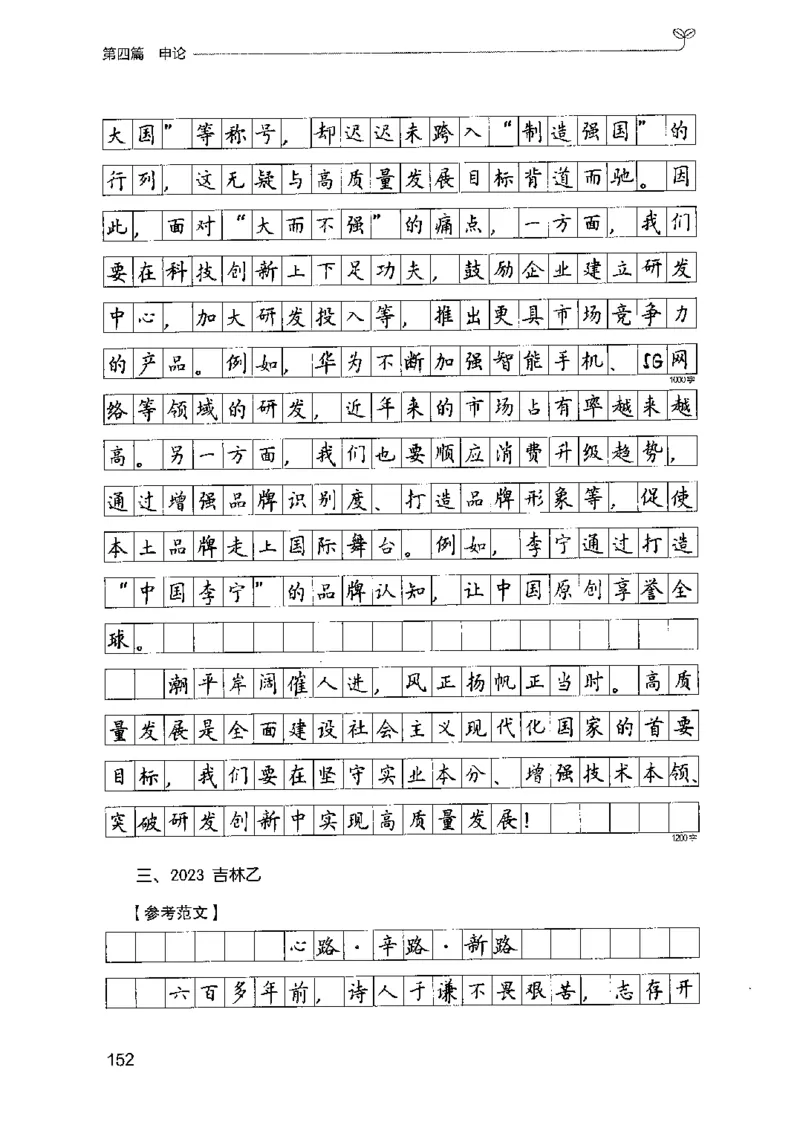 第四篇 申论
大国”等称号，却迟迟未跨入“制造强国”的
行列，这无疑与高质量发展目标背道而驰。因
此，面对“大而不强”的痛点，一方面，我们
要在科技创新上下足功夫，鼓励企业建立研发
中心，加大研发投入等，推出更具市场竞争力
的产品。例如，华为不断加强智能手机、5G网
1000字
络等领域的研发，近年来的市场占有率越来越
高。另一方面，我们也要顺应消费升级趋势，
通过增强品牌识别度、打造品牌形象等，促使
本土品牌走上国际舞台。例如，李宁通过打造
“中国李宁”的品牌认知，让中国原创享誉全
球。
潮平岸阔催人进，风正扬帆正当时。高质
量发展是全面建设社会主义现代化国家的首要
目标，我们要在坚守实业本分、增强技术本领、
突破研发创新中实现高质量发展！
1200字
三、2023 吉林乙
【参考范文】
心路·辛路·新路
六百多年前，诗人于谦不畏艰苦，志存开
152